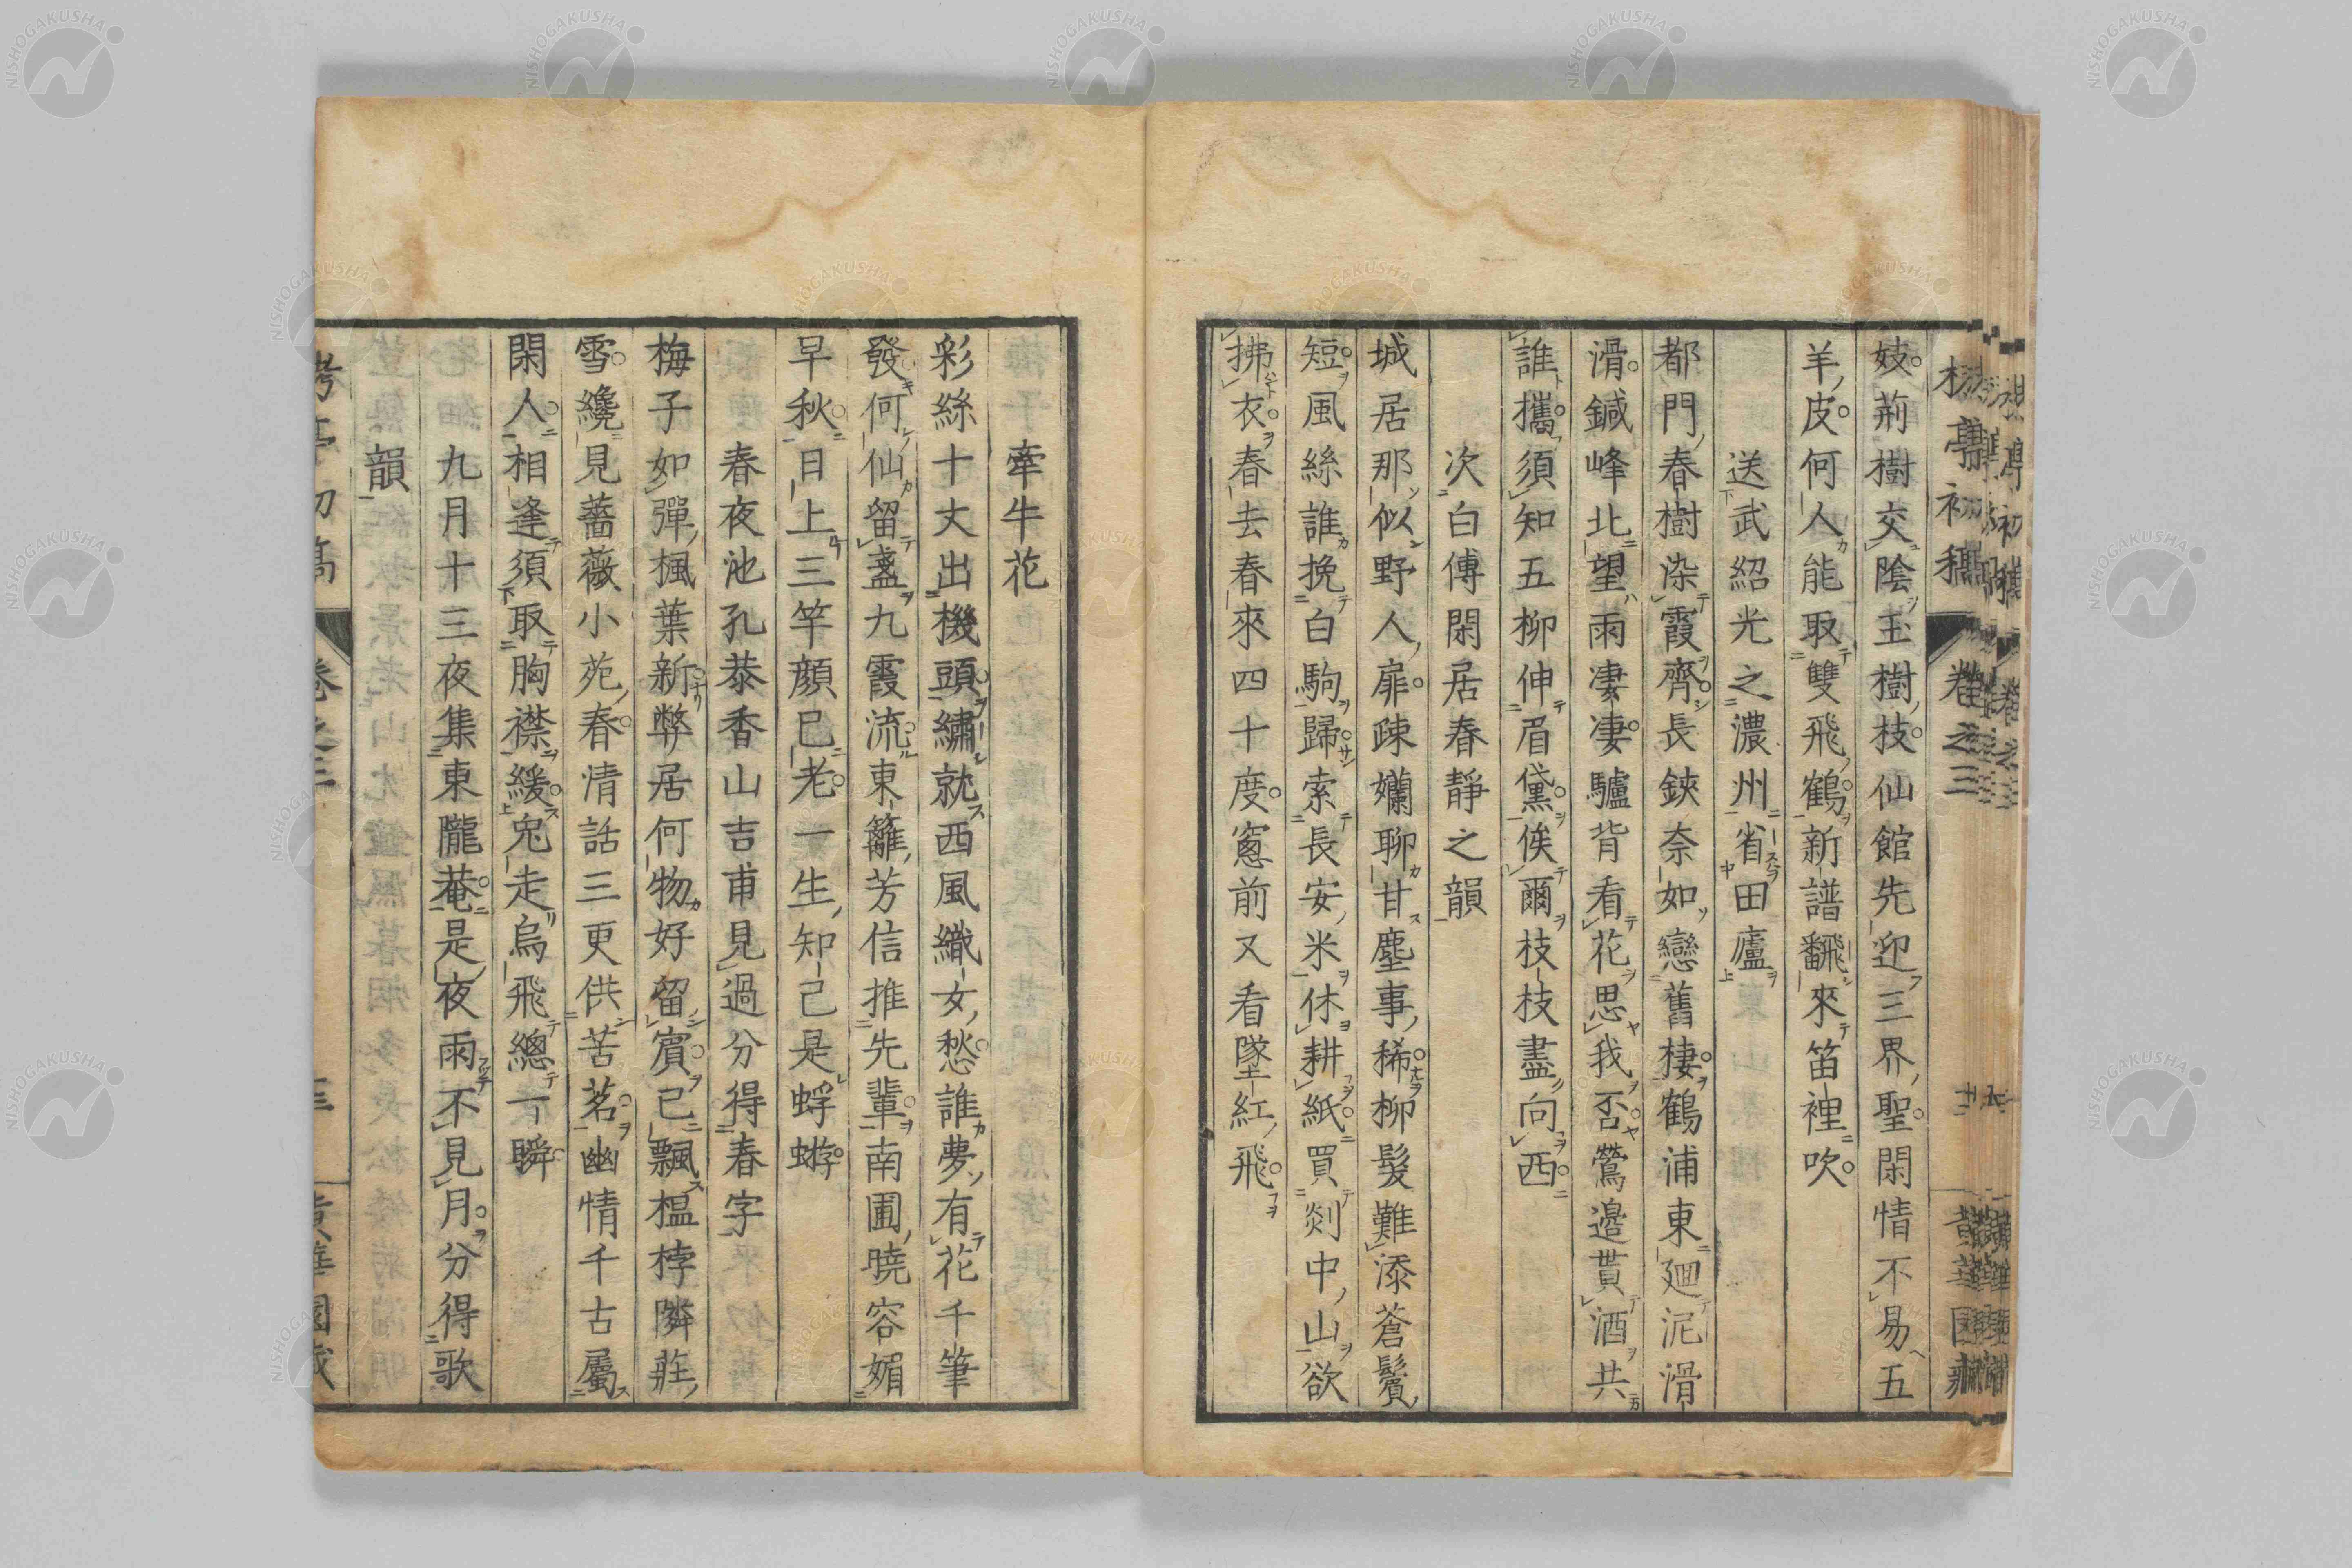 妓荊樹交陰玉樹枝仙館先迎三界聖閑情不易五
羊皮何人能取雙飛鶴新譜翻來笛裡吹
送武紹光之濃州省田廬
都門春樹染霞齊長鋏奈如戀舊棲鶴浦東廻泥滑
滑鍼峰北望雨凄凄驢背看花思我否鶯邊貰酒共
誰攜須知五柳伸眉黛俟爾枝枝盡向西
次白傅閑居春靜之韻
城居那似野人扉疎嬾聊甘塵事稀柳髮難添蒼鬢
短風絲誰挽白駒歸索長安米休耕紙買剡中山欲
拂衣春去春來四十度窓前又看墜紅飛
牽牛花
彩絲十丈出機頭繡就西風織女愁誰夢有花千筆
發何仙留盞九霞流東籬芳信推先輩南圃曉容媚
早秋日上三竿顏已老一生知己是蜉蝣
春夜池孔恭香山吉甫見過分得春字
梅子如彈楓葉新弊居何物好留賓已飄榲桲隣莊
雪纔見薔薇小苑春清話三更供苦茗幽情千古屬
閑人相逢須取胸襟緩兔走烏飛總一瞬
九月十三夜集東隴菴是夜雨不見月分得歌
韻
卷之三
NISHOGAKUSHA